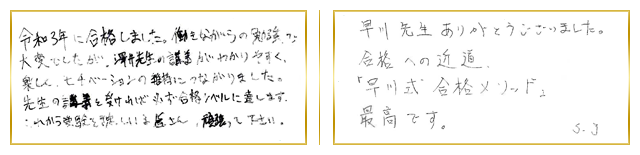 令和3年に合格しました。働きながらの勉強で
大変でしたが、澤井先生の講義がわかりやすく、
楽しく、モチベーションの維持につながりました。
先生の講義を受ければ必ず合格レベルに達します。
これから受験を
皆さん、頑張って下さい。
早川先生ありがとうございました。
合格への近道、
「早川式合格メソッド」
最高です。
S.Y